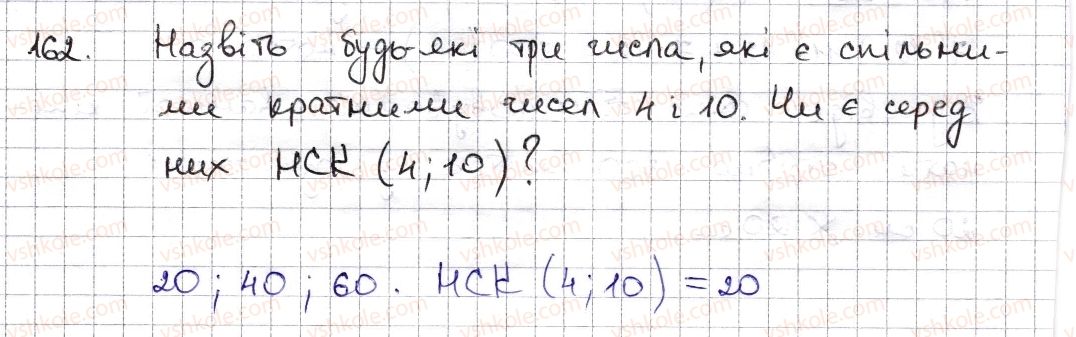 162. Назвіть будь-які три числа, які є спільни-
ми кратними чисел 4 і 10. Чи є серед
них НСК (4; 10)?
20; 40; 60. НСК (4; 10) = 20